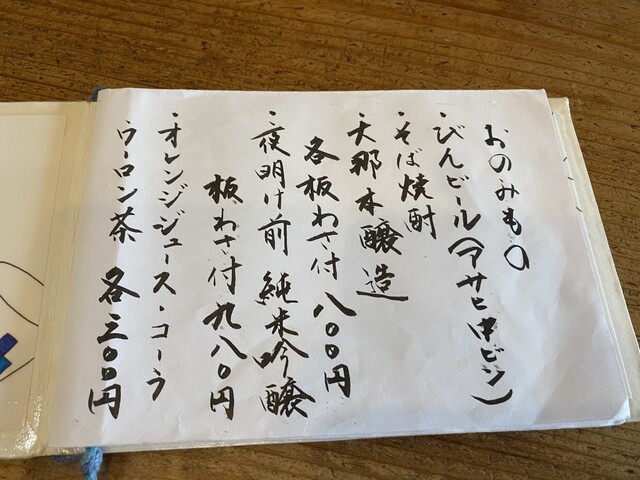 おのみもの
・びんビール(アサヒ中ビン)
・そば焼酎
・天那本醸造
各板わさ付 八〇〇円
・夜明け前 純米吟醸
板わさ付 九八〇円
・オレンジジュース・コーラ
ウーロン茶 各三〇〇円